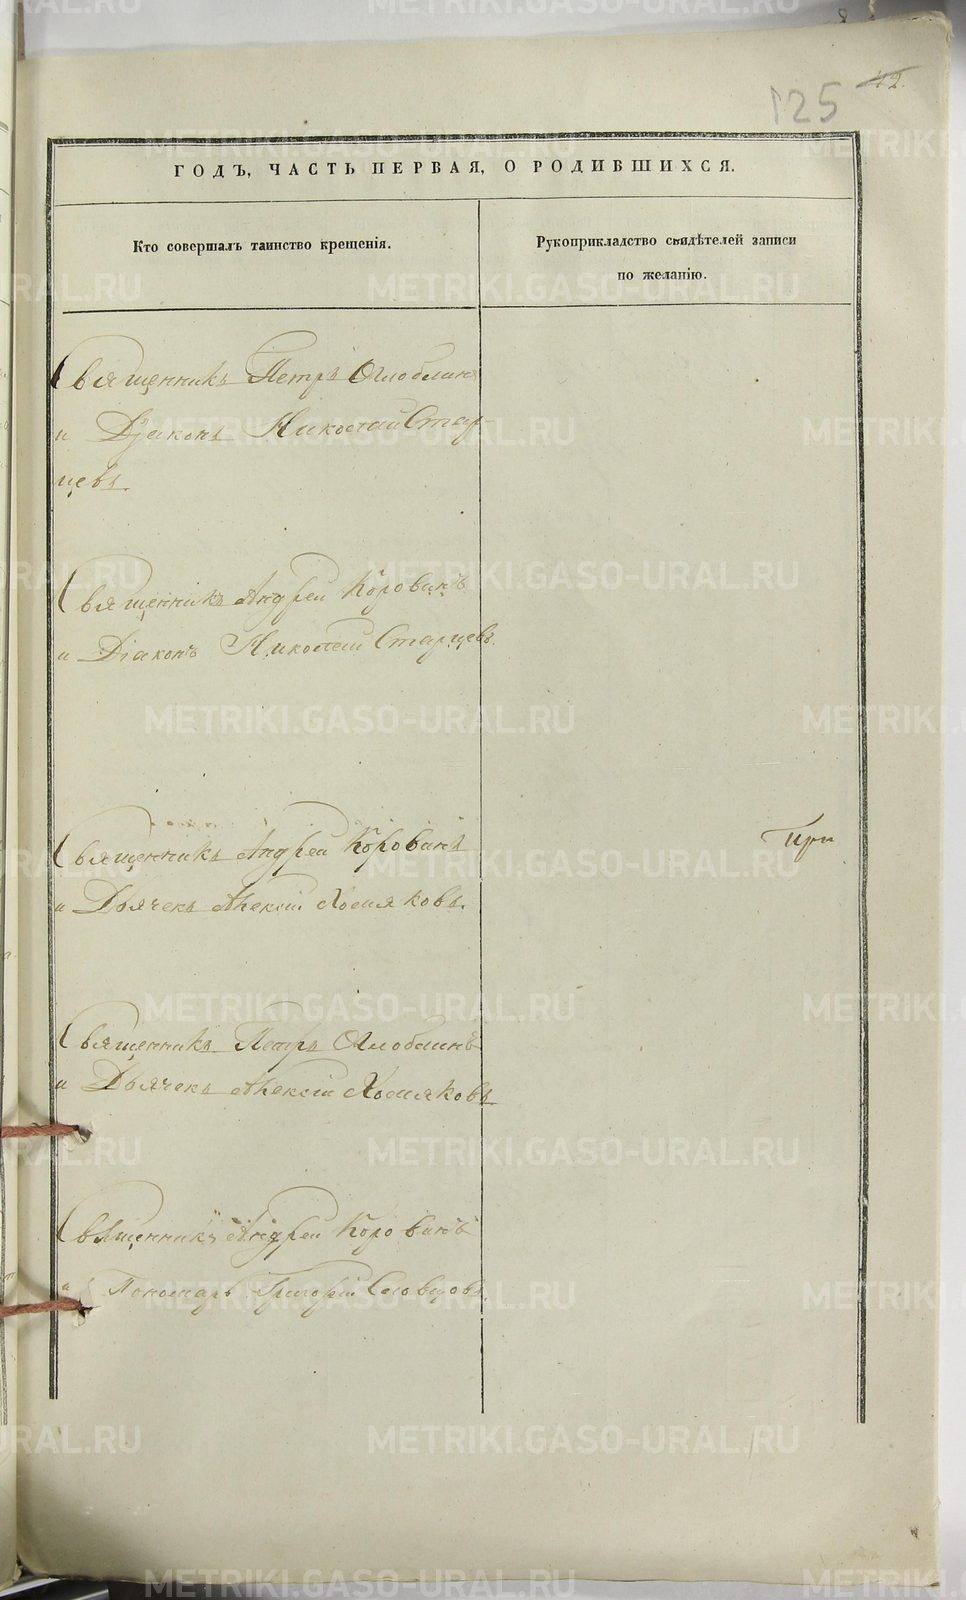 125
42.
ГОДЪ, ЧАСТЬ ПЕРВАЯ, О РОДИВШИХСЯ.
Кто совершалъ таинство крещенія.
Рукоприкладство свидѣтелей записи
по желанію.
Священникъ Петръ Оглоблинъ
и Діаконъ Николай Стар
цевъ.
Священникъ Андрей Коровинъ
и Діаконъ Николай Старцевъ.
Священникъ Андрей Коровинъ
и Дьячекъ Алексій Хомяковъ.
При
Священникъ Петръ Оглоблинъ
и Дьячекъ Алексій Хомяковъ
Священникъ Андрей Коровинъ
и Пономарь Григорій Словцовъ.
METRIKI.GASO-URAL.RU